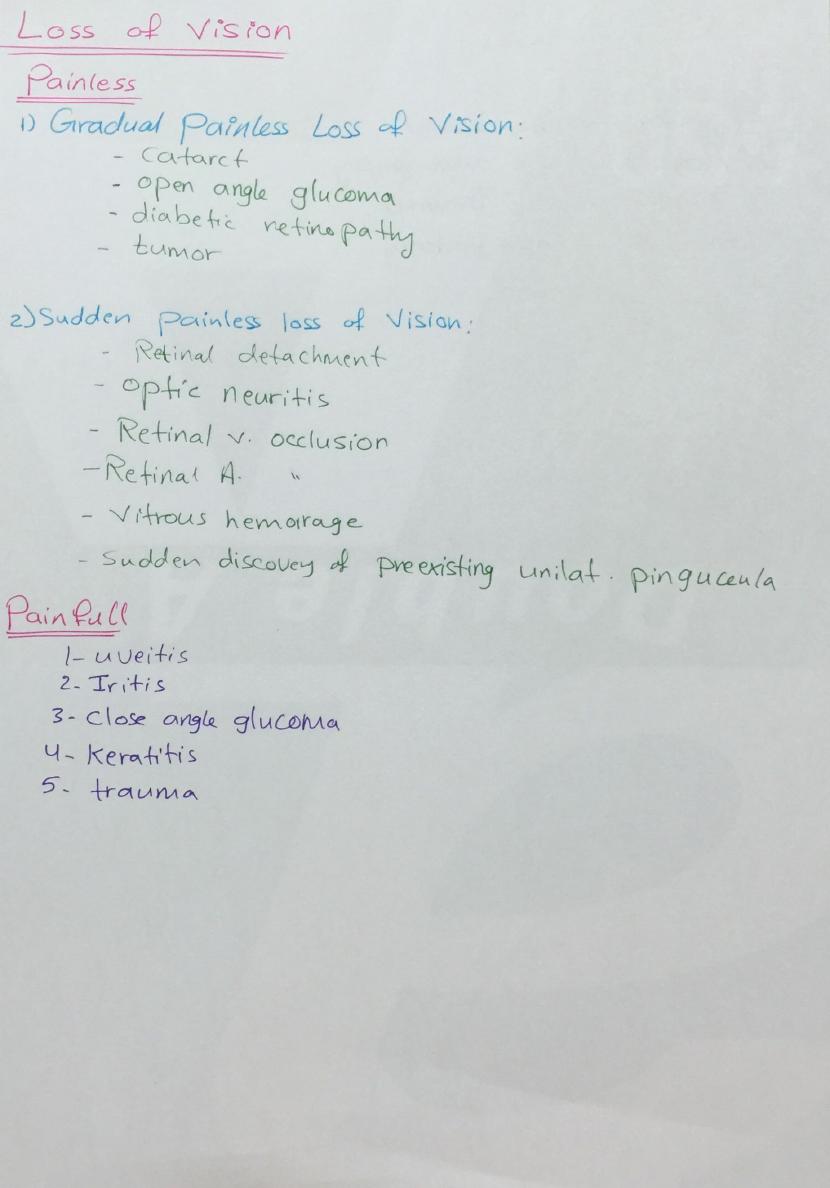 Loss of Vision
Painless
1) Gradual Painless Loss of Vision:
- Catarct
- open angle glucoma
- diabetic retinopathy
- tumor
2) Sudden Painless loss of Vision:
- Retinal detachment
- optic neuritis
- Retinal v. occlusion
- Retinal A. "
- Vitrous hemarage
- Sudden discovey of preexisting unilat. pinguceula
Painfull
1- uveitis
2- Iritis
3- Close angle glucoma
4- Keratitis
5- trauma